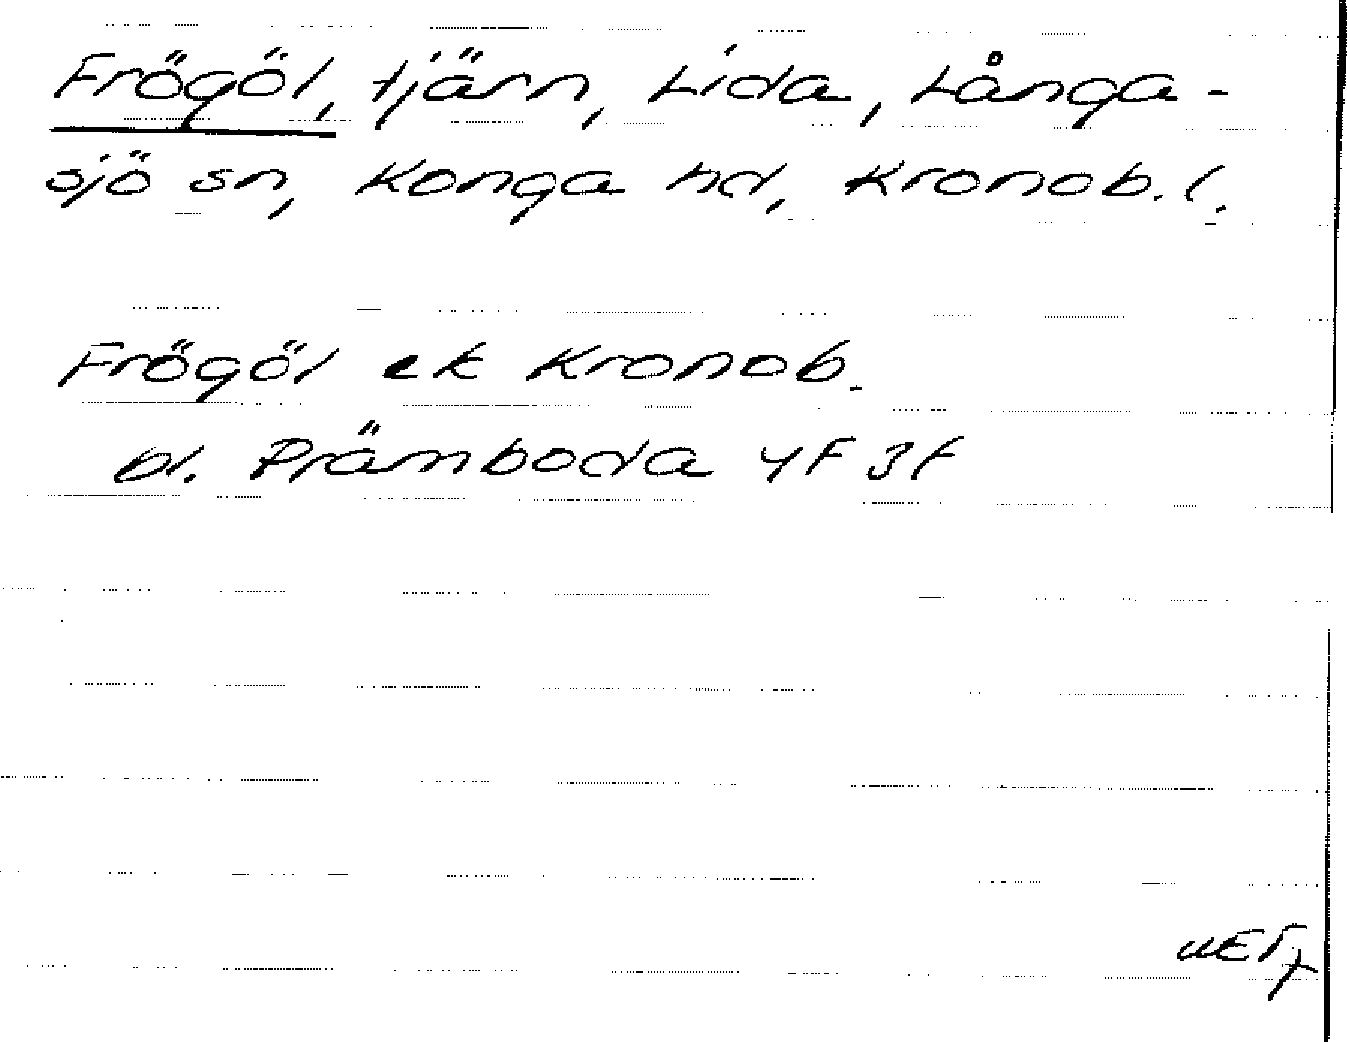 Frögöl, tjärn, Lida, Långa-
sjö sn, Konga hd, Kronob. l.
Frögöl ek Kronob.
bl. Prämboda 4F 3f